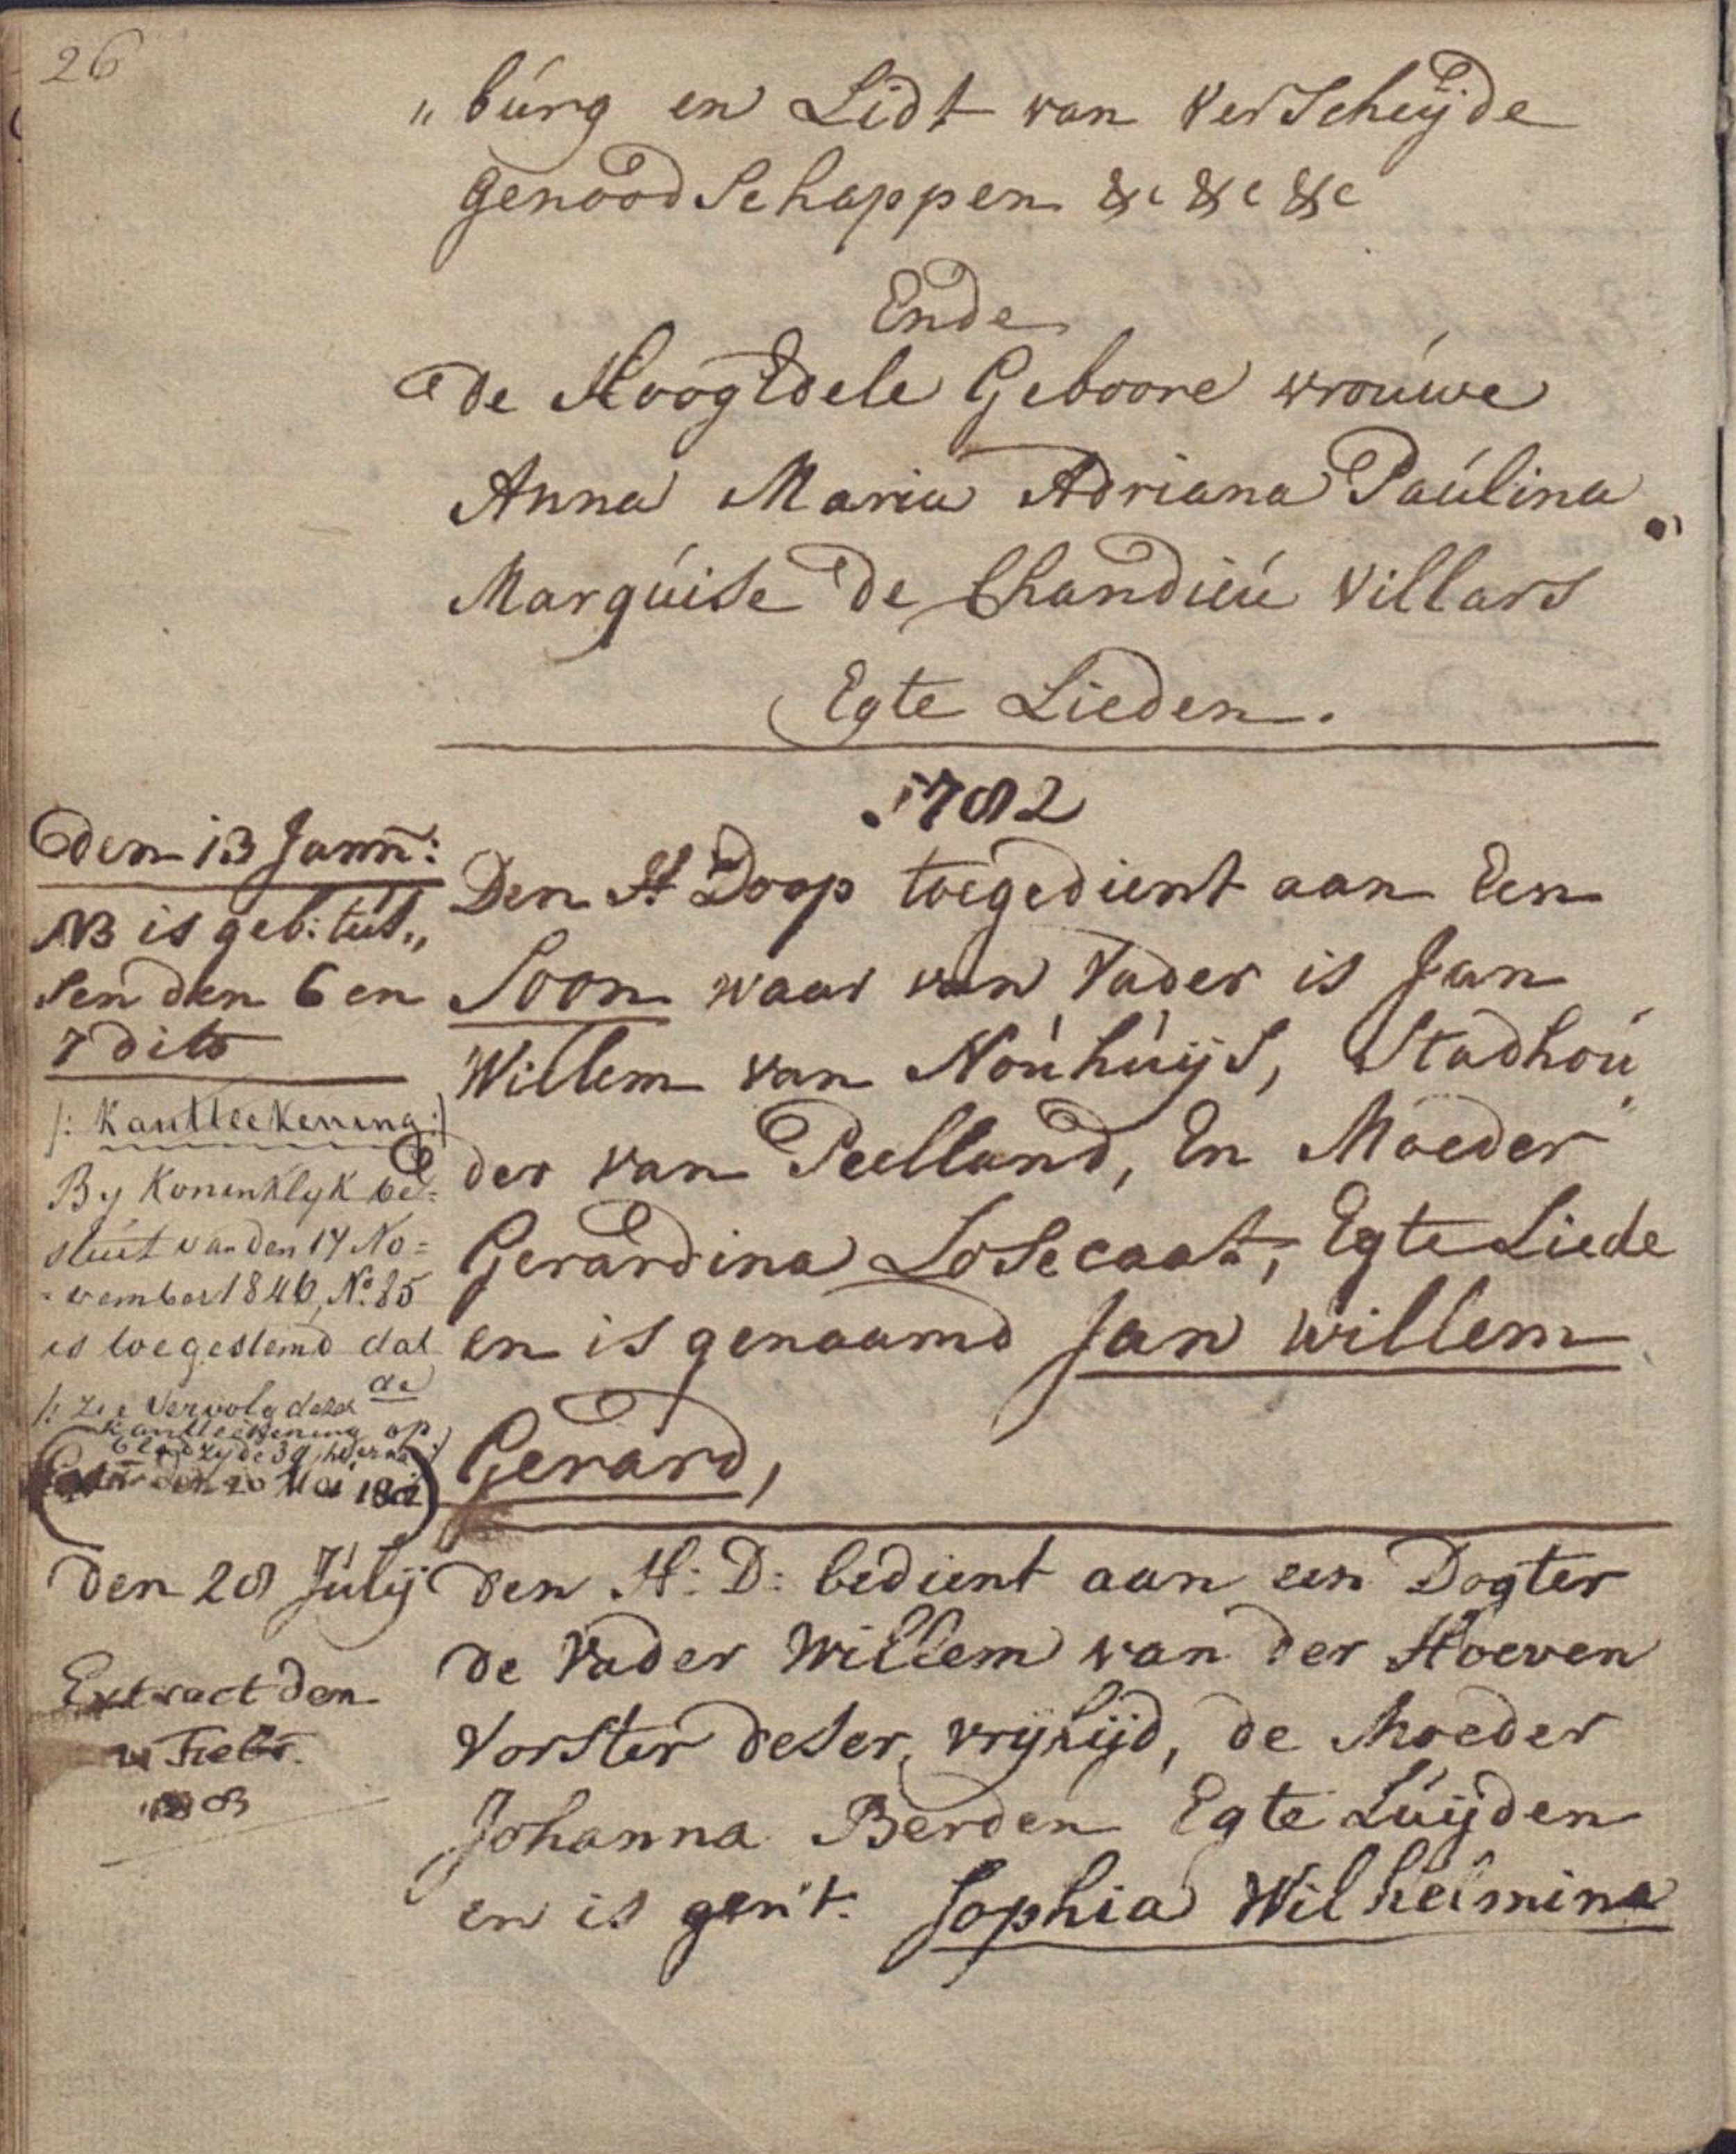 26
„ burg en Lidt van verscheijde
genoodschappen &c &c &c
Ende
de HoogEdele Geboore vrouwe
Anna Maria Adriana Paulina
Marquise de Chandieu Villars
Egte Lieden.
1782
den 13 Jann:
NB is geb: tus„
sen den 6 en
7 dito
Den H Doop toegedient aan Een
Soon waar van Vader is Jan
Willem van Nouhuijs, Stadhou„
der van Peelland, En Moeder
Gerardina Losecaat, Egte Liede
en is genaamd Jan Willem
Gerard,
/: Kantteekening :/
By Koninklyk be=
sluit van den 17 No=
=vember 1846, No. 85
is toegestemd dat
de
/: Zie vervolg dezer
Kantteekening op
bladzyde 39 hierna :/
den 20 Mei
den 28 Julij
den H: D: bedient aan een Dogter
de Vader Willem van der Hoeven
Vorster deser vrijhijd, de Moeder
Johanna Berden Egte Luijden
en is gen't. Sophia Wilhelmina
Extract den
Febr.